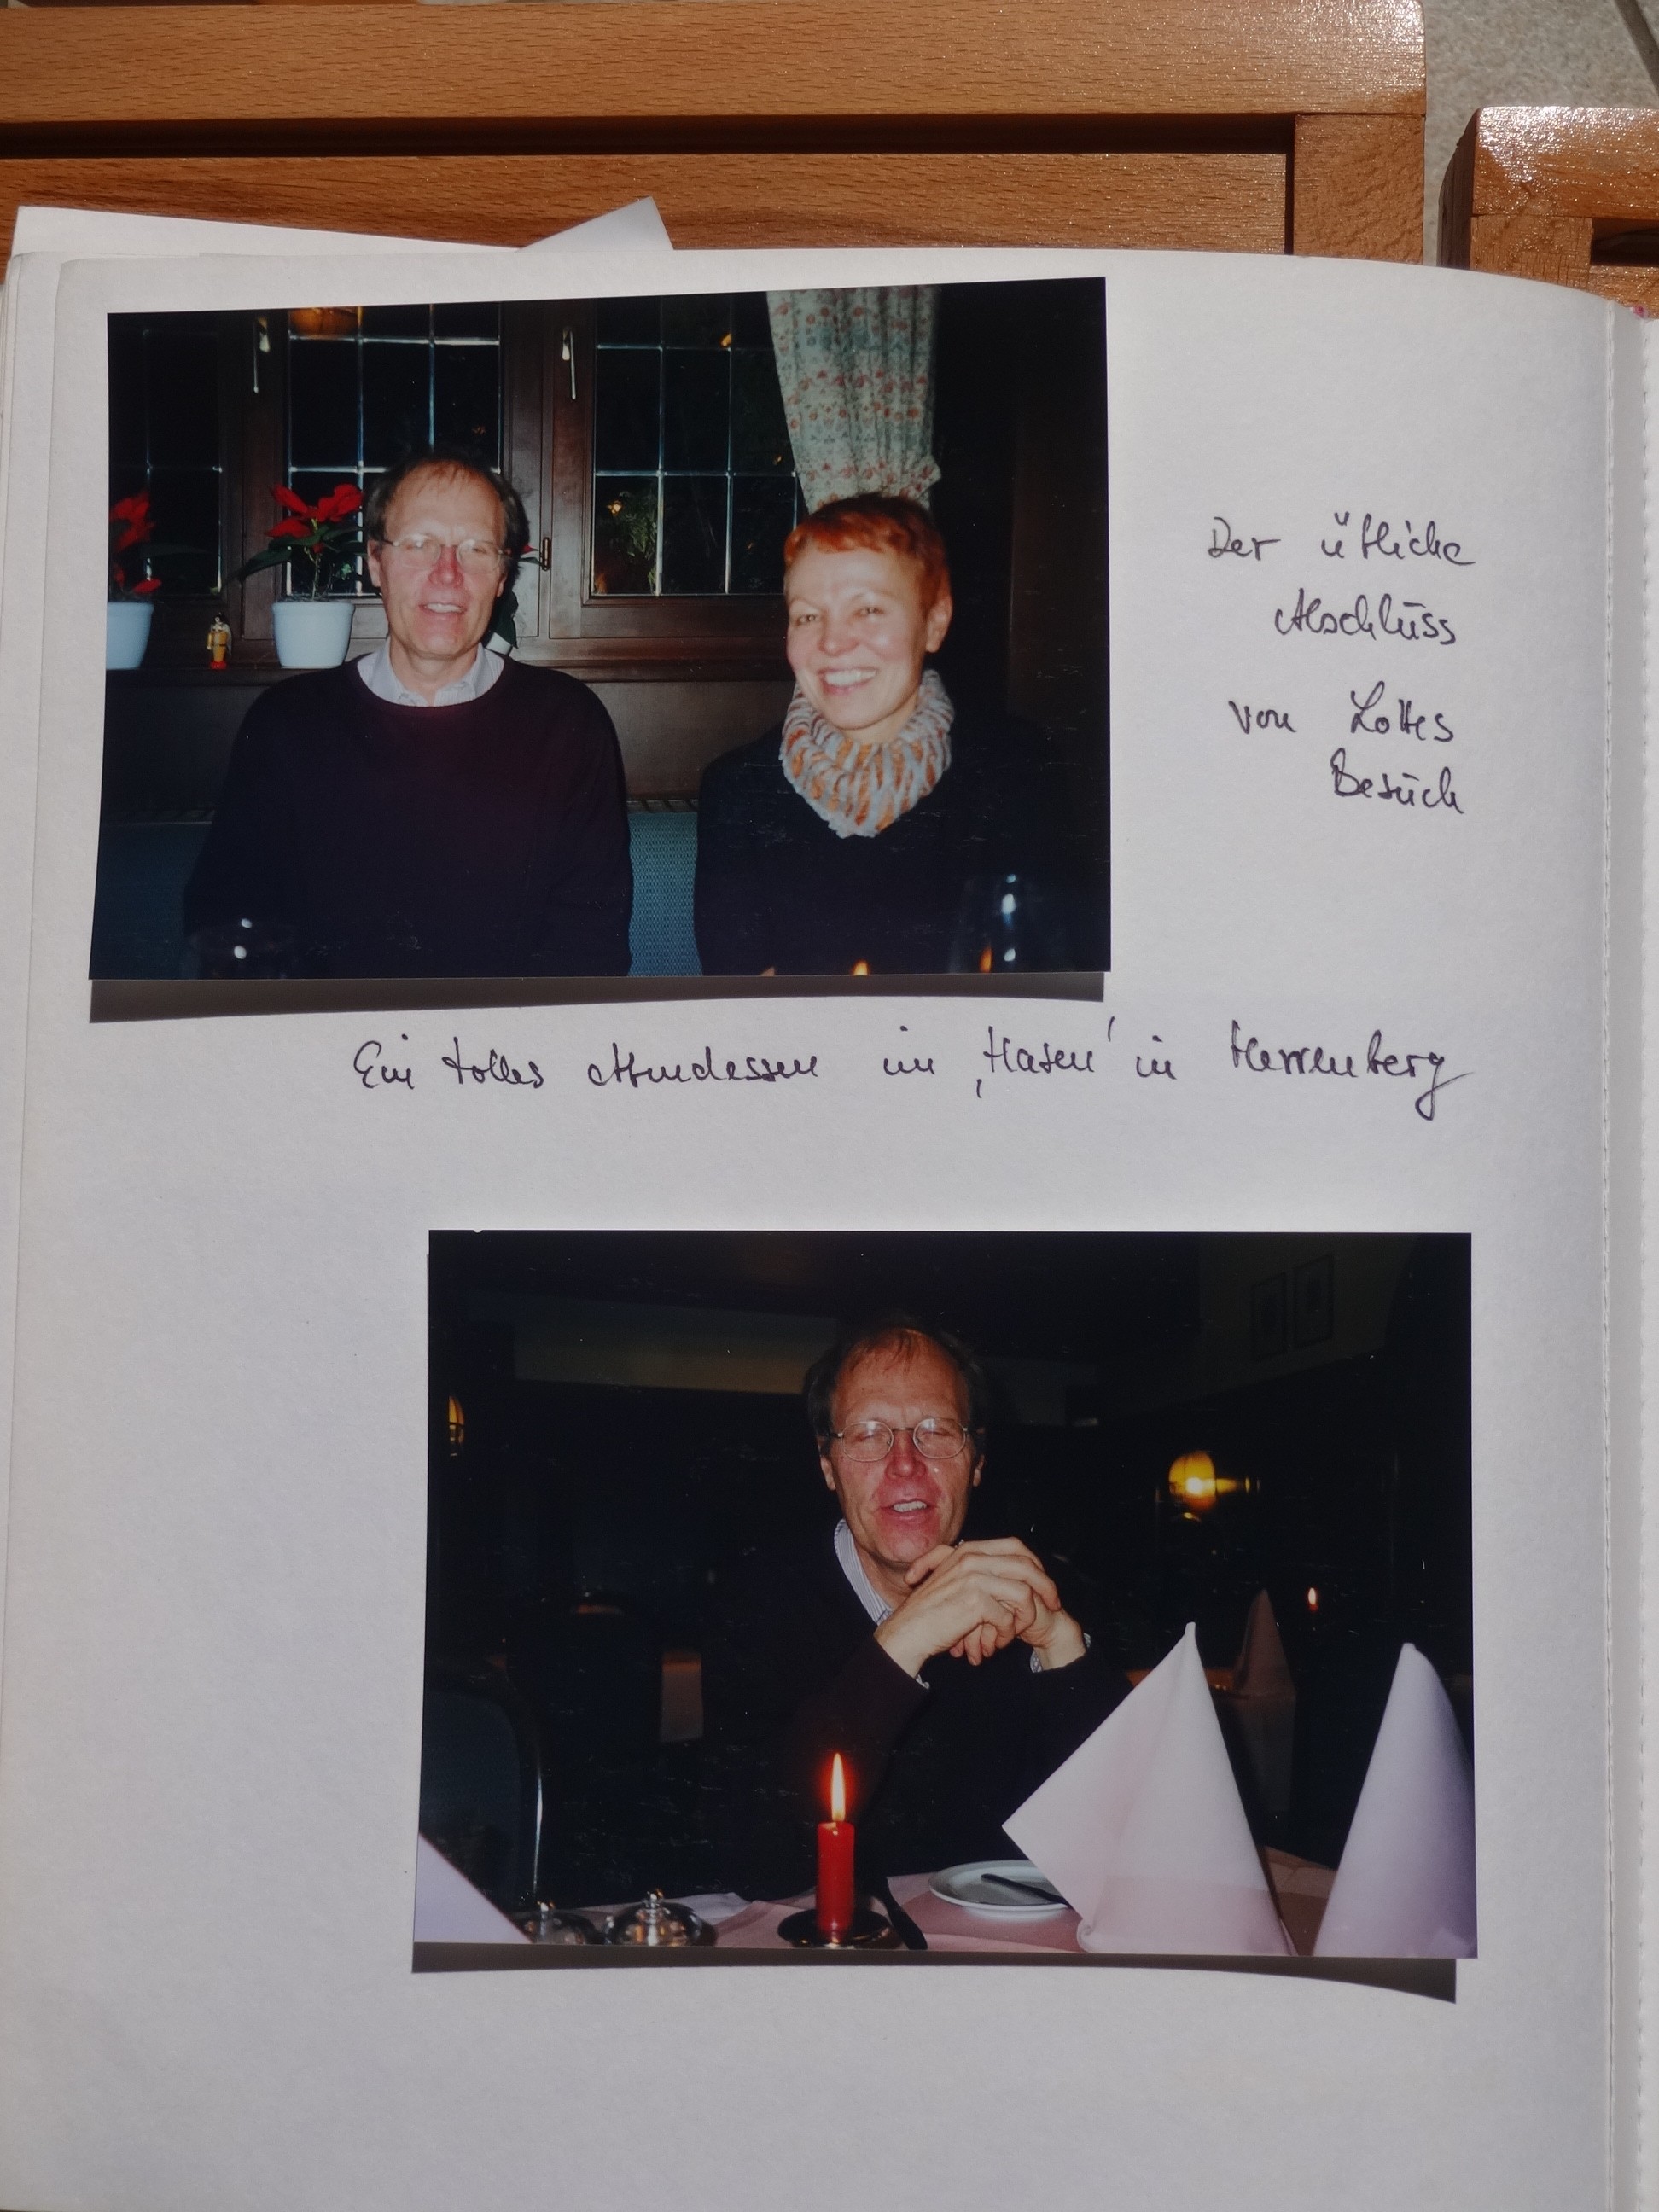 Der übliche
Abschluss
von Lottes
Besuch
Ein tolles Abendessen im ‚Hasen' in Herrenberg